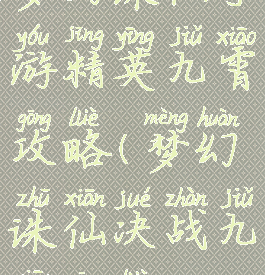 yóu jīng yīng jiǔ xiāo
游精英九霄
gōng lüè mèng huàn
攻略(梦幻
zhū xiān jué zhàn jiǔ
诛仙决战九